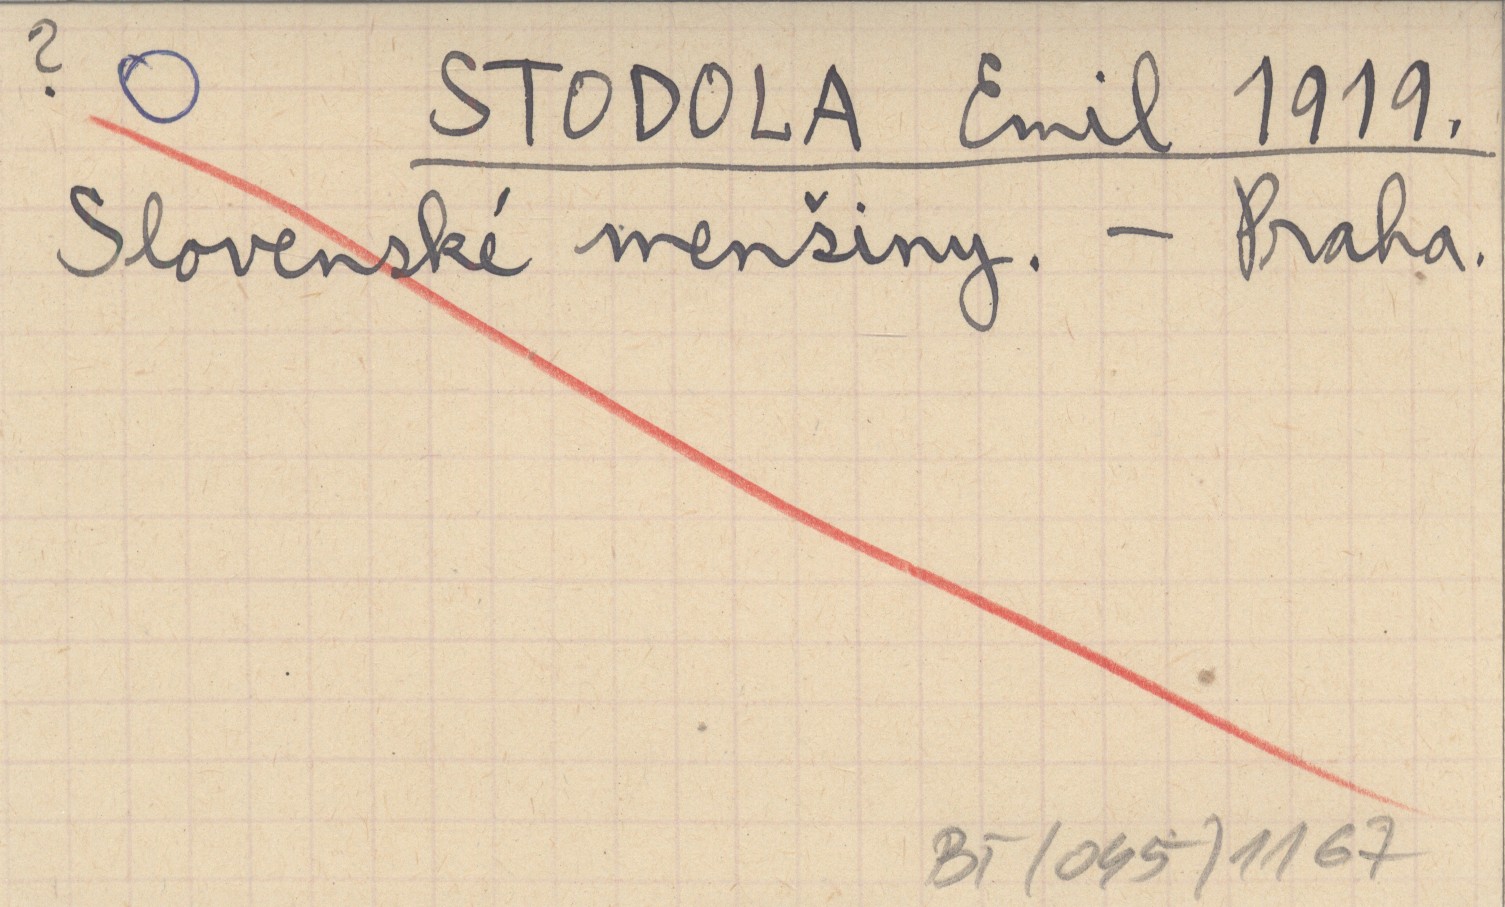 ?
STODOLA Emil 1919.
Slovenské menšiny. — Praha.
BT (045) 1167